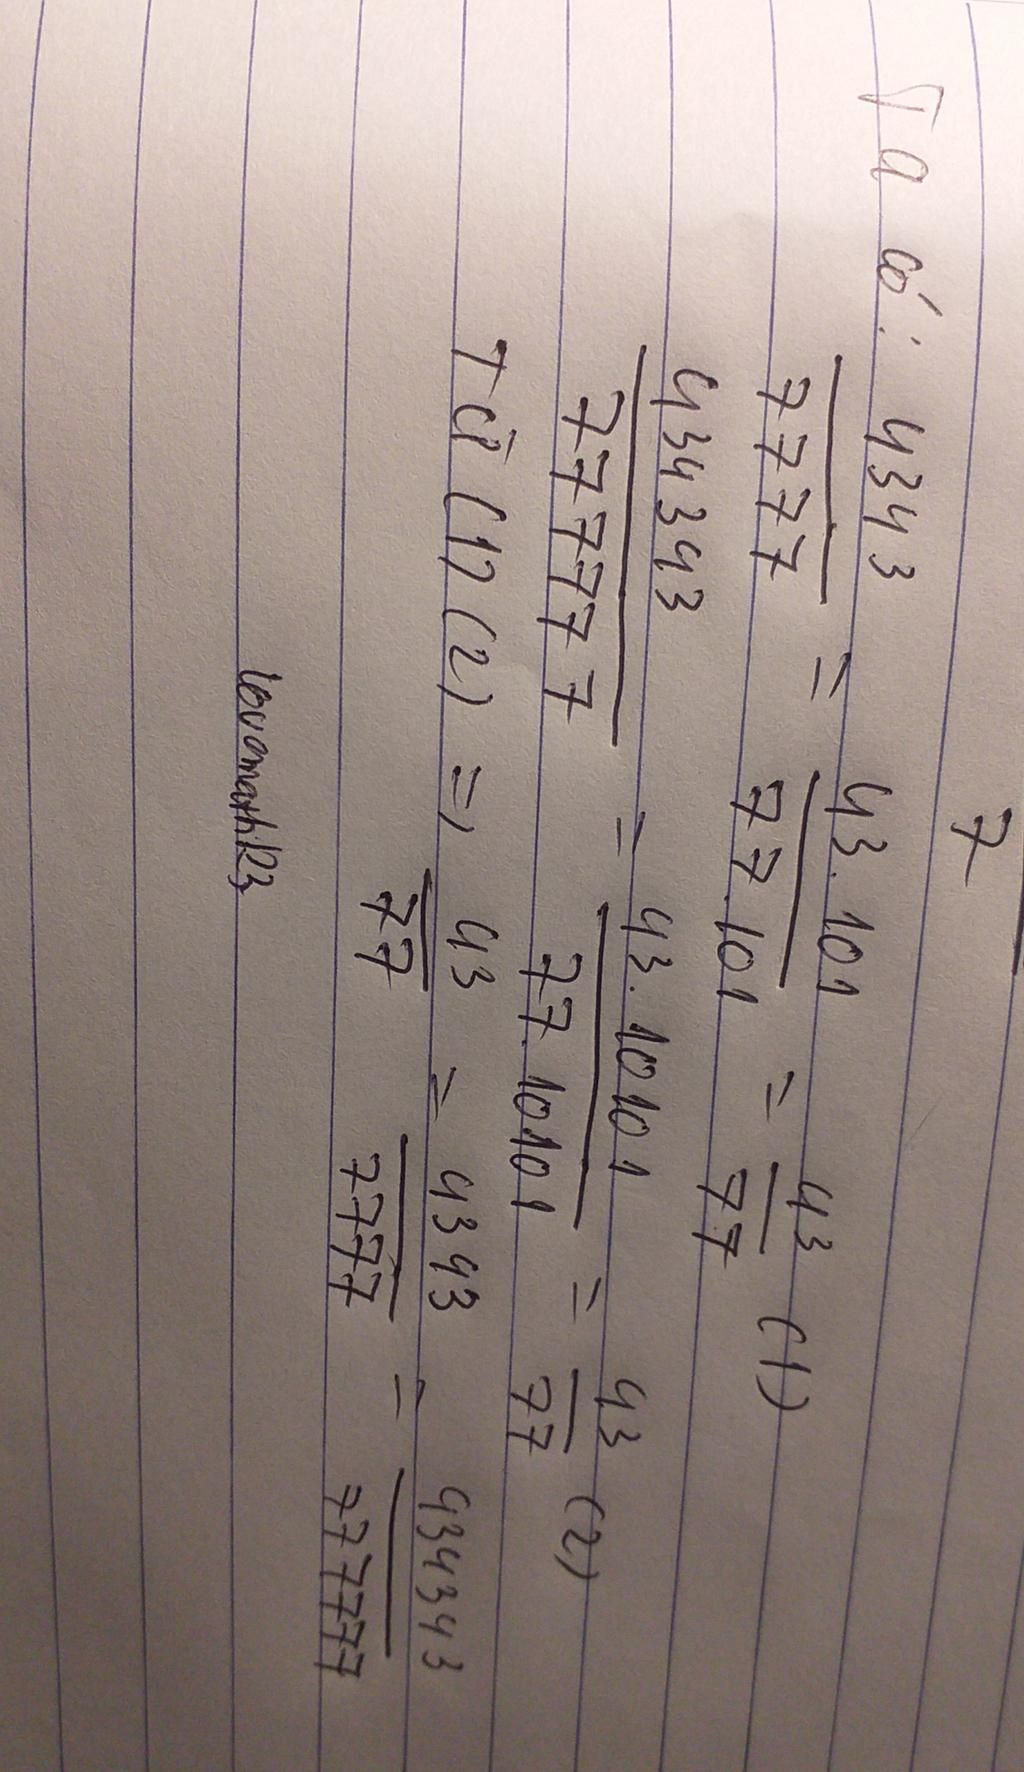 7
Ta có: 4343/7777 = 43.101/77.101 = 43/77 (1)
434343/777777 = 43.10101/77.10101 = 43/77 (2)
Từ (1) (2) => 43/77 = 4343/7777 = 434343/777777